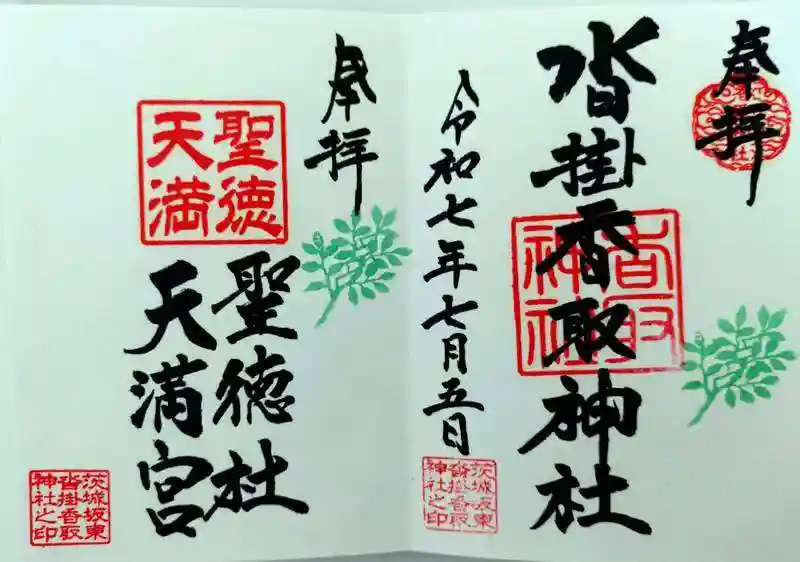 奉拝
沓掛香取神社
香取
神社
令和七年七月五日
茨城坂東
沓掛香取
神社之印
奉拝
聖徳
天満
聖徳社
天満宮
茨城坂東
沓掛香取
神社之印